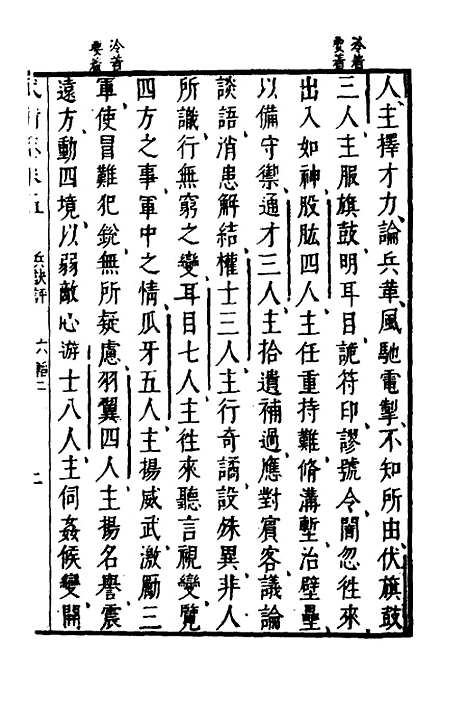 冷着
要着
人主擇才力論兵革風馳電掣不知所由伏旗鼓
三人主服旗鼓明耳目詭符印謬號令闇忽徃來
出入如神股肱四人主任重持難脩溝塹治壁壘
以備守禦通才三人主拾遺補過應對賓客議論
談語消患解結權士三人主行奇譎設殊異非人
所識行無窮之變耳目七人主徃來聽言視變覽
四方之事軍中之情瓜牙五人主揚威武激勵三
冷着
要着
軍使冒難犯銳無所疑慮羽翼四人主揚名譽震
遠方動四境以弱敵心游士八人主伺姦候變開
兵訣評 六韜二